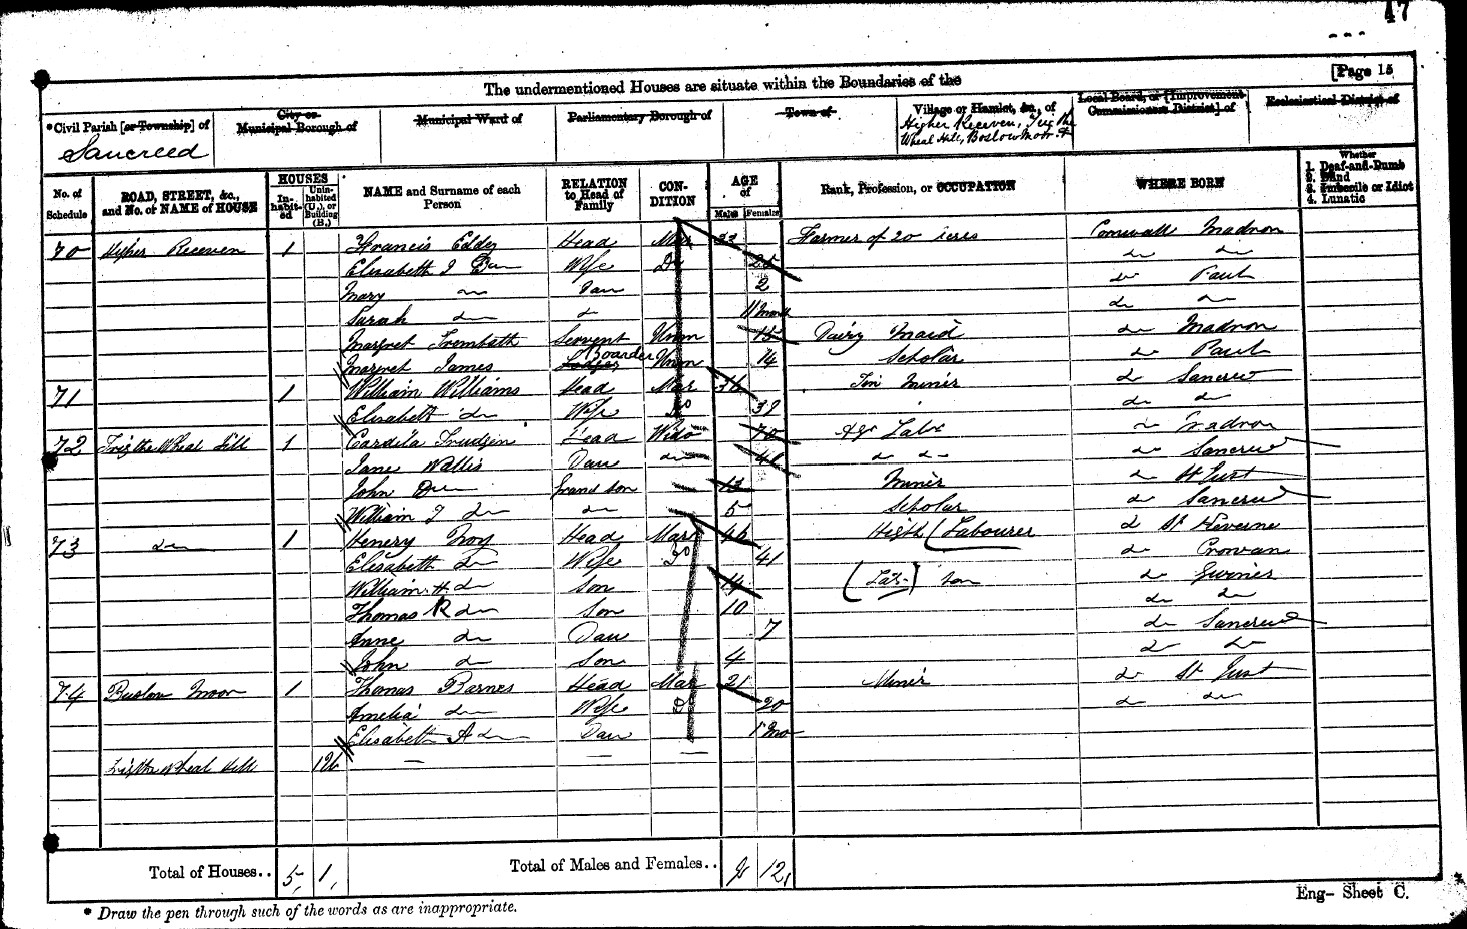 47
[Page 15
The undermentioned Houses are situate within the Boundaries of the
*Civil Parish [or Township] of
Sancreed
City or Municipal Borough of
Municipal Ward of
Parliamentary Borough of
Town of
Village or Hamlet, &c., of
Higher Receven,
Wheal Hill, Boslow Moor
Local Board, or [Improvement Commissioners District] of
Ecclesiastical District of
No. of Schedule
ROAD, STREET, &c., and No. or NAME of HOUSE
HOUSES
In-habit-ed
Unin-habited (U.), or Building (B.)
NAME and Surname of each Person
RELATION to Head of Family
CON-DITION
AGE of
Males
Females
Rank, Profession, or OCCUPATION
WHERE BORN
Whether
1. Deaf-and-Dumb
2. Blind
3. Imbecile or Idiot
4. Lunatic
70 Higher Receven 1 Francis Eddy Head Mar 33 Farmer of 20 acres Cornwall Madron
Elisabeth J Do Wife Do 25 do do
Mary do Dau 2 do Paul
Sarah do do 11 Mons do do
Margret Trembath Servent Unm 15 Dairy Maid do Madron
Margret James Lodger Boarder Unm 14 Scholar do Paul
71 1 William Williams Head Mar 36 Tin Miner do Sancreed
Elisabeth do Wife Do 39 do do
72 Wheal Hill 1 Trudgin Head Wido 70 Agr Labr do Madron
Jane Wallis Dau do 41 do do do Sancreed
John Do Grand son 13 Miner do St Just
William J do do 5 Scholar do Sancreed
73 do 1 Henery Noy Head Mar 46 High (Labourer do St Keverne
Elisabeth do Wife Do 41 do Crowan
William H do Son 14 (Lab) do Gwiner
Thomas R do Son 10 do do
Anne do Dau 7 do Sancreed
John do Son 4 do do
74 Boslow Moor 1 Thomas Barnes Head Mar 21 Miner do St Just
Amelia do Wife Do 20 do do
Elisabeth A do Dau 5 Mo
Wheal Hill 1 U
Total of Houses.. 5 1
Total of Males and Females.. 9 12
Eng- Sheet C.
* Draw the pen through such of the words as are inappropriate.